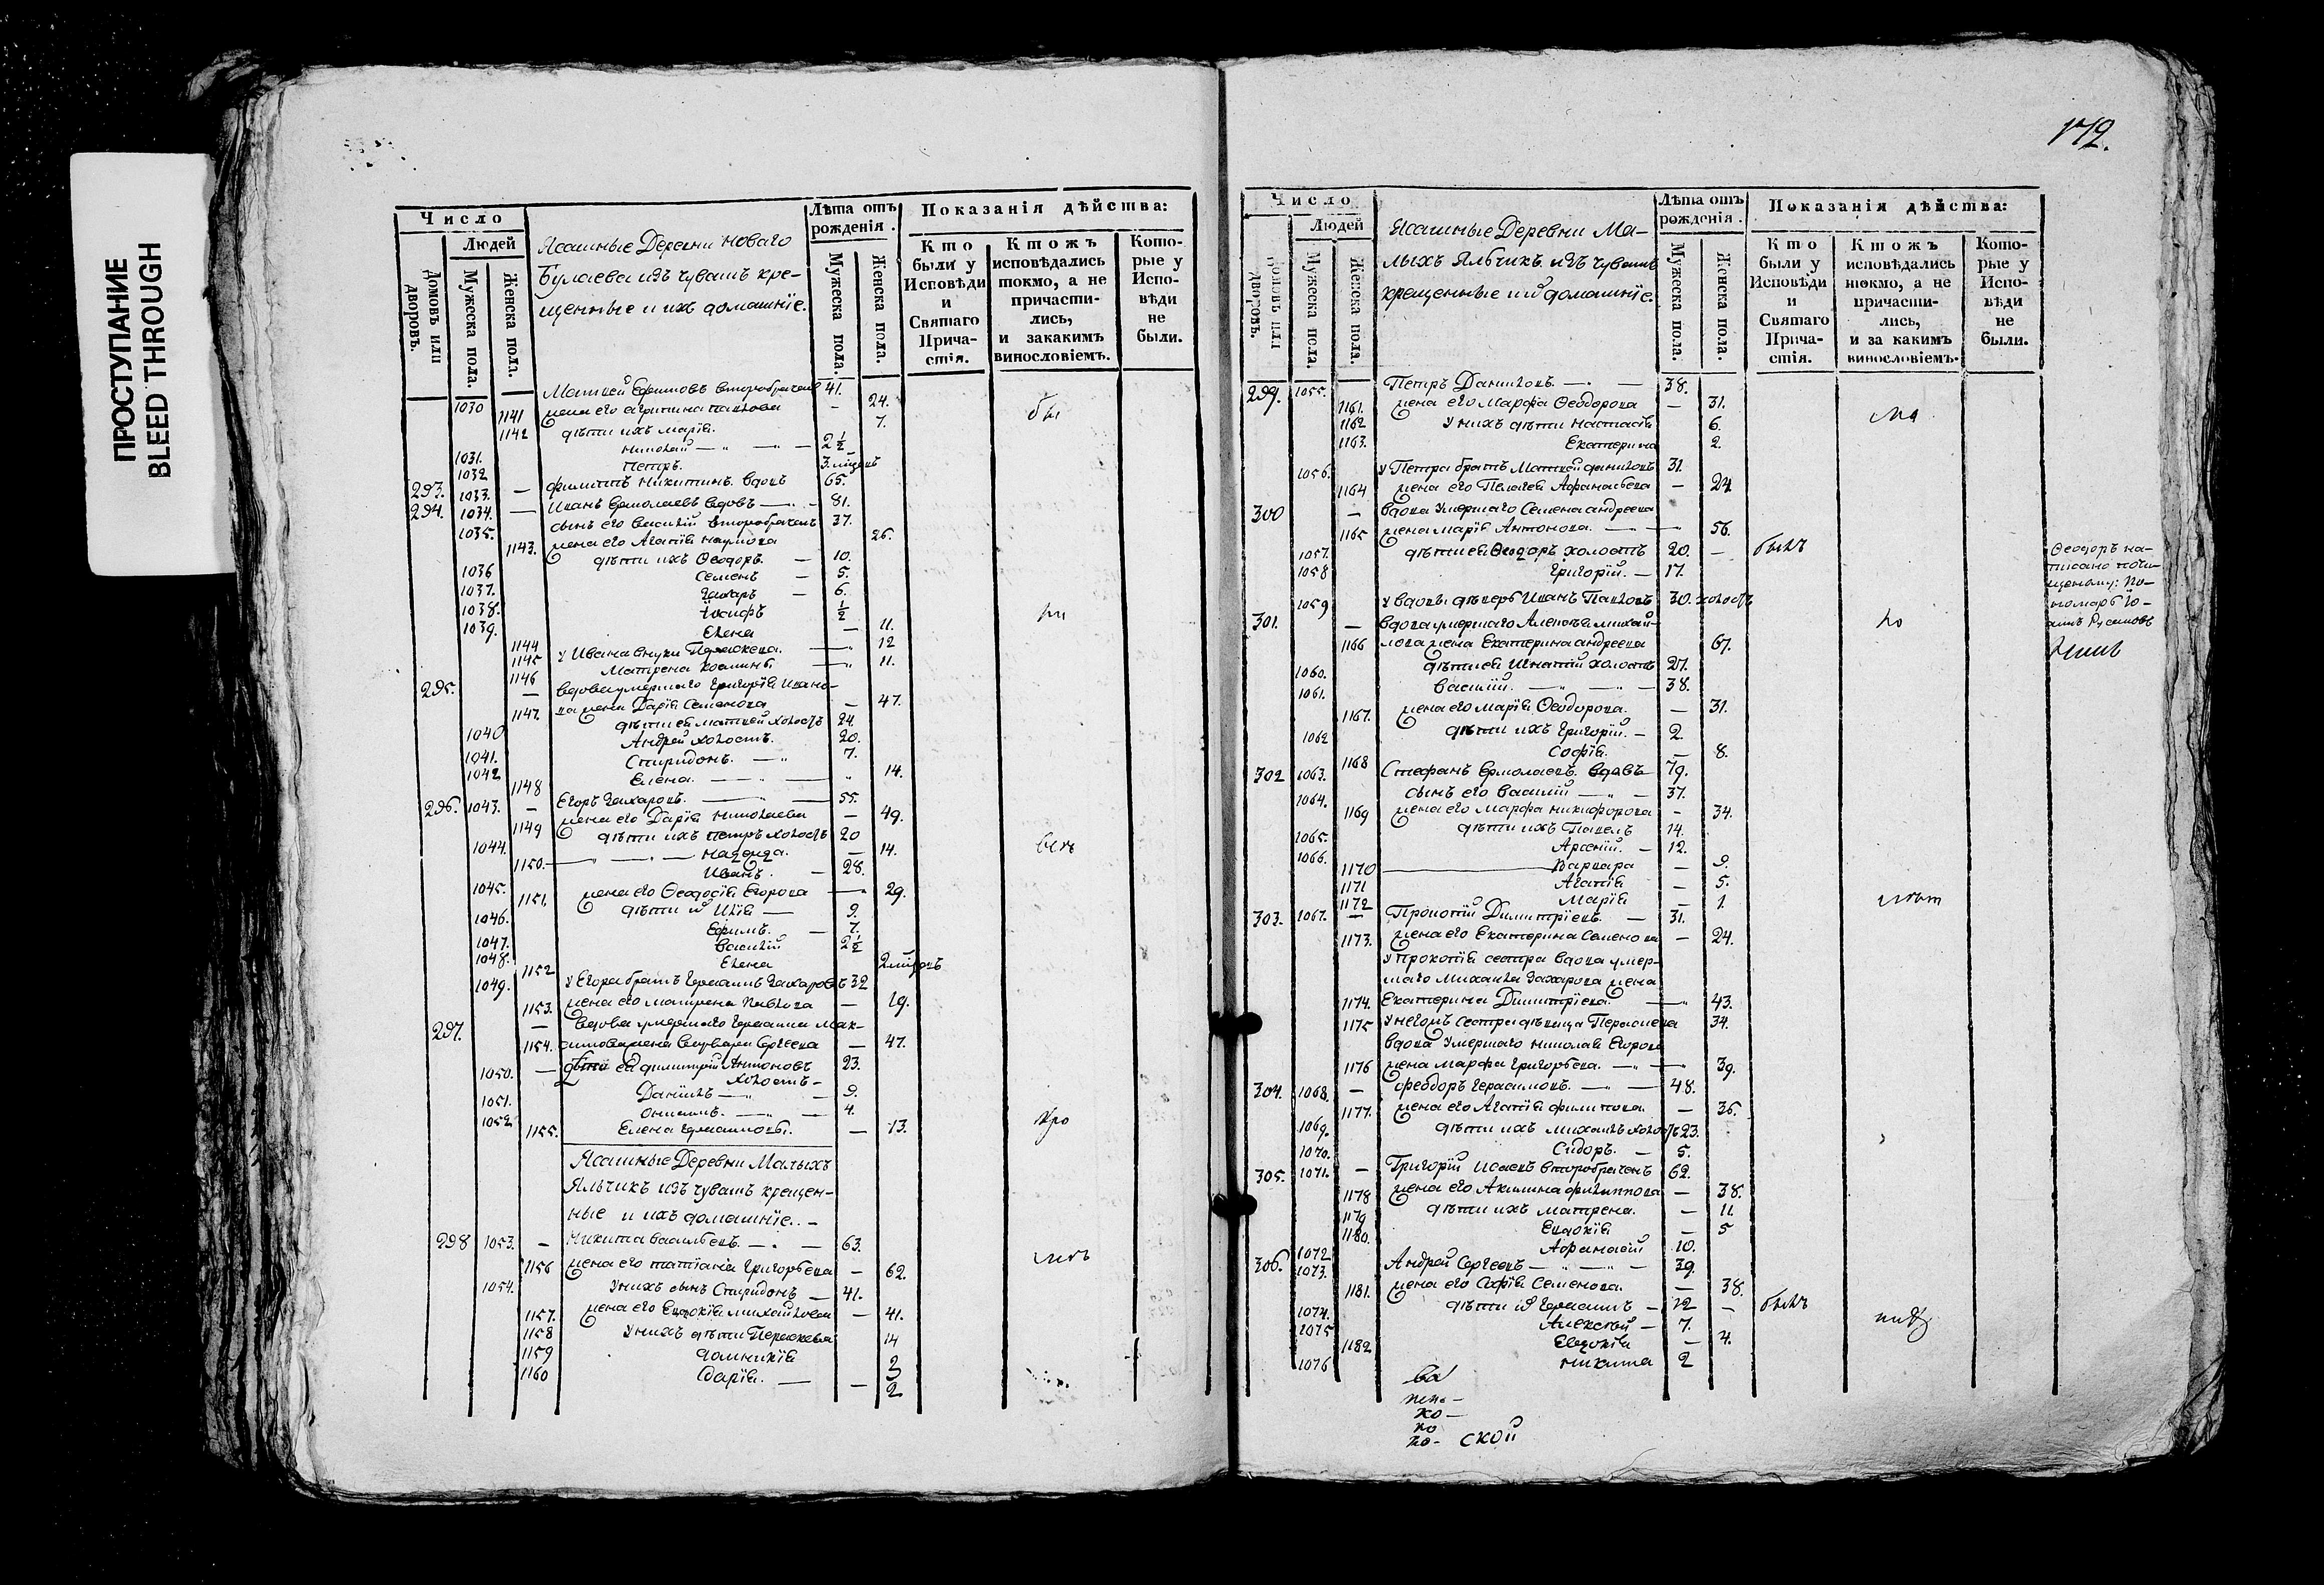 ПРОСТУПАНИЕ
BLEED THROUGH
172.
Число
Людей
Домовъ или дворовъ.
Мужеска пола.
Женска пола.
Ясашные Деревни Новаго
Булаева изъ чувашъ кре-
щенные и ихъ домашнїе.
Лѣта отъ рожденія.
Мужеска пола.
Женска пола.
Показанія дѣйства:
Кто были у Исповѣди и Святаго Прича-стія.
Ктожъ исповѣдались токмо, а не причасти-лись, и закакимъ винословіемъ.
Кото-рые у Испо-вѣди не были.
1030 Матвей Ефимовъ второбраченъ 41.
1141 жена его Агрипина Павлова — 24.
1142 дѣти ихъ Марїя. 7.
1031. Николай — 2½
1032 Петръ. 3. мѣсяцъ
293. 1033. — Филиппъ Никитинъ. вдовъ 65.
294. 1034. — Иванъ Ермолаевъ вдовъ — 81.
1035. сынъ его Василїй второбраченъ 37.
1143. жена его Агапїя Наумова 26.
1036 дѣти ихъ Ѳеодоръ. — 10.
1037. Семенъ — 5.
1038. Захаръ — 6.
1039. Іосифъ ½
1144 Елена — 11.
1145 у Ивана внуки Параскева. — 12
1146 Матрена — 11.
295. — вдова умершаго Григорїя Ивано-
1147. ва жена Дарїя Семенова — 47.
1040 дѣти ея Матвей холостъ 24.
1041. Андрей холостъ. 20.
1042 Спиридонъ. — 7.
1148 Елена. — 14.
296. 1043. — Егоръ Захаровъ. — 55.
1149 жена его Дарїя Николаева — 49.
1044. дѣти ихъ Петръ холостъ 20
1150. — Надежда. — 14.
1045. Иванъ. — 28.
1151. жена его Ѳеодосїя Егорова — 29.
1046. дѣти Илїя — 9.
1047. Ефимъ. — 7.
1048. Василїй 2½
1152 Елена 2 мѣсяцъ
1049. у Егора братъ Герасимъ Захаровъ 32
1153. жена его Матрена Павлова — 19.
297. — вдова умершаго Герасима Мак-
1154. симова жена Варвара Сергеева — 47.
1050. — дѣти ея Димитрїй Антоновъ 23.
холостъ —
1051. Данїилъ — 9.
1052. Онисимъ. — 4.
1155. Елена Герасимова. — 13.
Ясашные Деревни Малыхъ
Яльчикъ изъ чувашъ крещен-
ные и ихъ домашнїе. —
298 1053. — Никита Васильевъ. — 63.
1156 жена его Татїана Григорьева — 62.
1054. У нихъ сынъ Спиридонъ — 41.
1157. жена его Евдокїя Михайлова — 41.
1158 У нихъ дѣти Параскева 14
1159 Домникїя 3
1160 Дарїя. — 2
Число
Людей
Домовъ или дворовъ.
Мужеска пола
Женска пола.
Ясашные Деревни Ма-
лыхъ Яльчикъ изъ чувашъ
крещенные и домашнїе.
Лѣта отъ рожденія.
Мужеска пола.
Женска пола.
Показанія дѣйства:
Кто были у Исповѣди и Святаго Прича-стія.
Ктожъ исповѣдались токмо, а не причасти-лись, и за какимъ винословіемъ.
Кото-рые у Испо-вѣди не были.
299. 1055. Петръ Даниловъ. — 38.
1161. жена его Марфа Ѳеодорова — 31.
1162 У нихъ дѣти Настасїя 6.
1163. Екатерина 2.
1056. у Петра братъ Матвей Даниловъ 31.
1164 жена его Пелагея Афанасьева — 24
300 — вдова умершаго Семена Андреева
1165 жена Марїя Антонова. — 56.
1057. дѣти ея Ѳеодоръ холостъ 20. — былъ
1058 Григорїй. — 17.
1059 у вдовы деверь Иванъ Павловъ 30. холостъ
301. — вдова умершаго Алексея Михай-
1166 лова жена Екатерина Андреева 67.
1060. дѣти ея Игнатїй холостъ 27.
1061. Василїй. — 38.
1167. жена его Марїя Ѳеодорова. — 31.
1062 дѣти ихъ Григорїй. — 2.
1168 Софїя. — 8.
302 1063. Стефанъ Ермолаевъ. вдовъ — 79.
1064. сынъ его Василїй — 37.
1169 жена его Марфа Никифорова — 34.
1065. дѣти ихъ Павелъ 14.
1066. Арсенїй. — 12.
1170 Варвара — 9.
1171 Агапїя — 5.
1172 Марїя — 1.
303. 1067. — Прокопїй Димитрїевъ. — 31.
1173. жена его Екатерина Семенова — 24.
У Прокопїя сестра вдова умер-
шаго Михаила Захарова жена
1174. Екатерина Димитрїева. — 43.
1175 У него жъ сестра девица Параскева 34.
вдова умершаго Николая Егорова
1176 жена Марфа Григорьева. — 39.
304. 1068. — Феодоръ Герасимовъ. — 48.
1177. жена его Агапїя Филипова. — 36.
1069. дѣти ихъ Михаилъ холостъ 23.
1070. Сидоръ. — 5.
305. 1071. — Григорїй Исаевъ второбраченъ 62.
1178 жена его Акилина Филиппова — 38.
1179 дѣти ихъ Матрена. — 11.
1180. Евдокїя — 5
1072 Афанасїй 10.
306. 1073. Андрей Сергеевъ — 39.
1181. жена его Софїя Семенова. — 38.
1074. дѣти Герасимъ — 12 — былъ
1075 Алексей — 7.
1182 Евдокїя — 4.
1076 Никита 2
Ѳеодоръ на-
писано по чи-
щеному: По-
номарь Іо-
аннъ
ской